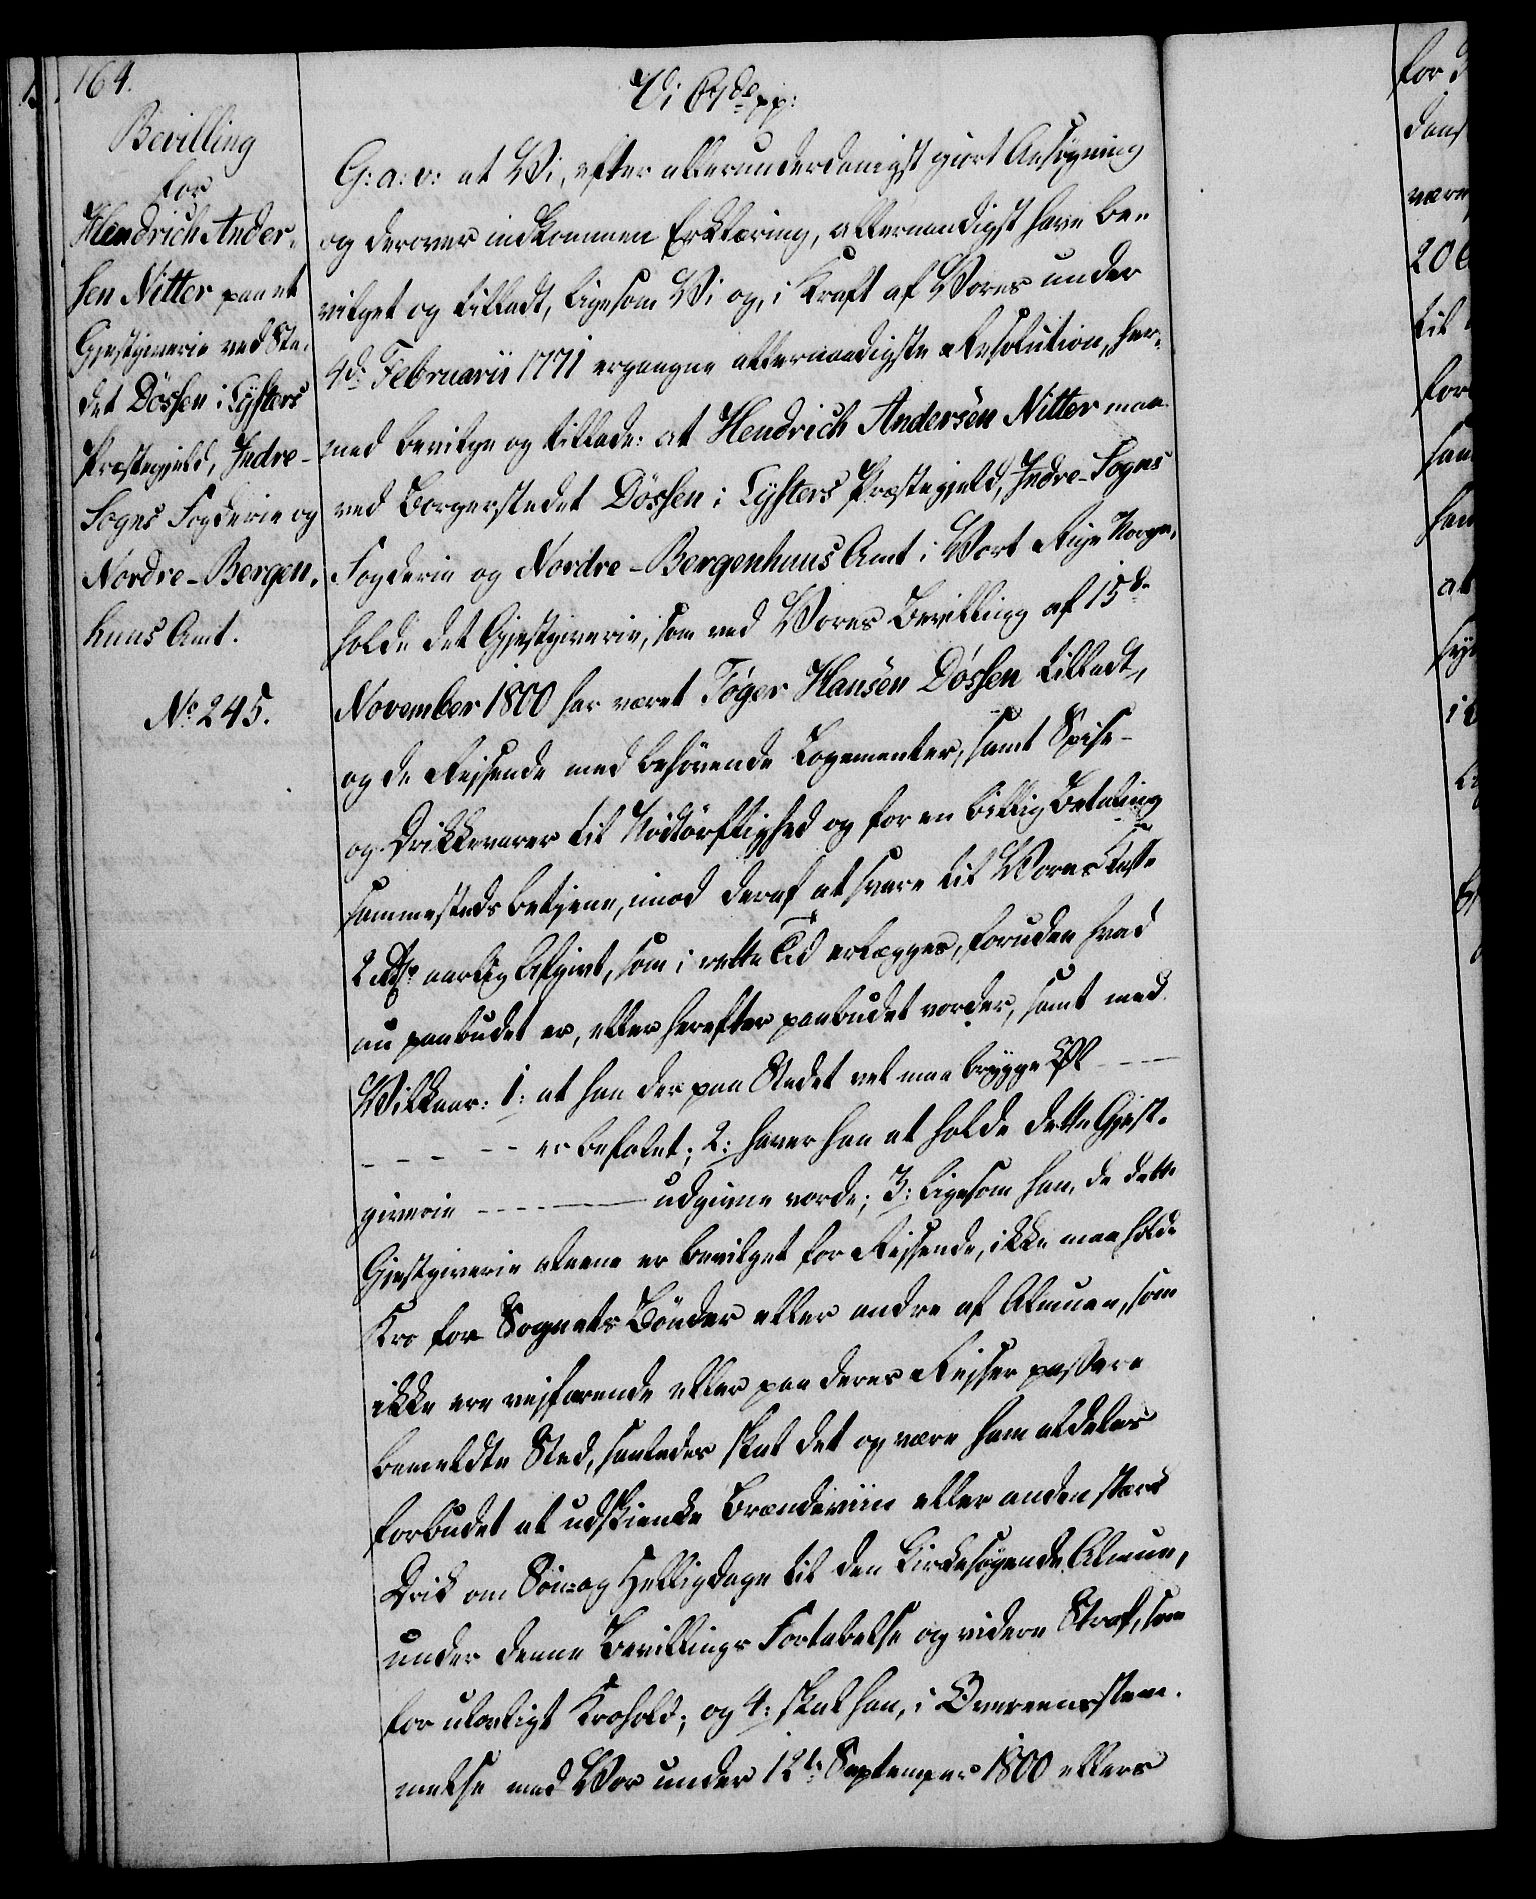 164.
Bevilling
for
Hendrich Ander-
sen Nitter paa et
Gjestgiverie ved Ste-
det Dössen i Lysters
Præstegjeld, Indre-
Sogns Fogderie og
Nordre-Bergen-
huus Amt.
No 245.
Vi pp:
G: a: v: at Vi, efter allerunderdanigst giort Ansögning
og derover indkommen Erklæring, allernaadigst have be-
vilget og tilladt, ligesom Vi og, i Kraft af Vores under
4de Februarii 1771 ergangne allernaadigste Resolution, her-
med bevilge og tillade: at Hendrich Andersen Nitter maa
ved Borgerstedet Dössen i Lysters Præstegjeld, Indre-Sogns
Fogderie og Nordre-Bergenhuus Amt i Vort Rige Norge,
holde det Gjestgiverie, som ved Vores Bevilling af 15de
November 1800 har været Töger Hansen Dössen tilladt,
og de Reisende med behövende Logementer, samt Spise-
og Drikkevarer til Nödtörftighed og for en billig Betaling
sammesteds betjene, imod deraf at svare til Vores Kasse
2 Rdr aarlig Afgivt, som i rette Tid erlægges, foruden hvad
nu paabudet er, eller herefter paabudet vorder, samt med
Vilkaar: 1: at han der paa Stedet vel maa brygge Öl - - -
- - - - - er befalet; 2: haver han at holde dette Gjest-
giverie - - - - - - udgivne vorde; 3: ligesom han, da dette
Gjestgiverie alene er bevilget for Reisende, ikke maa holde
Kro for Sognets Bönder eller andre af Almuen, som
ikke ere veifarende eller paa deres Reiser passere
bemeldte Sted, saaledes skal det og være ham aldeles
forbudet at udskienke Brændeviin eller anden stærk
Drik om Sön- og Helligdage til den kirkesögende Almue,
under denne Bevillings Fortabelse og videre Straf, som
for ulovligt Krohold; og 4: skal han, i Overeensstem-
melse med Vor under 12te September 1800 ellers